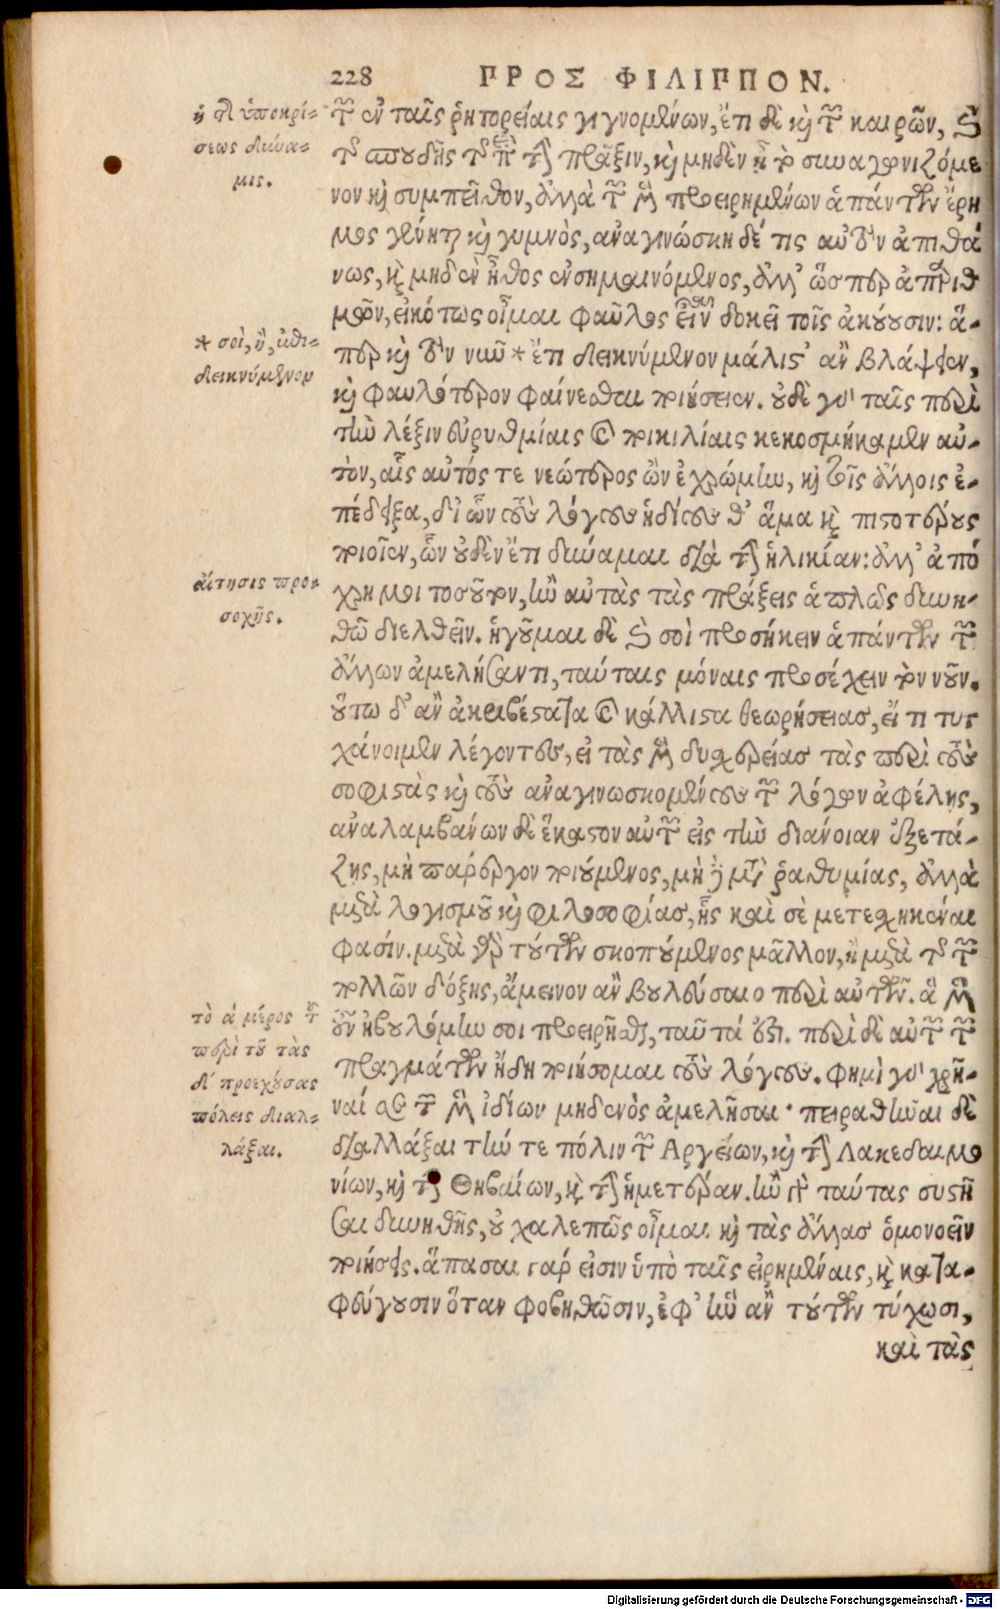 228 ΠΡΟΣ ΦΙΛΙΠΠΟΝ.
ἡ τῆς ὑποκρί-
σεως δύνα-
μις.
τῶν ἐν ταῖς ῥητορείαις γιγνομένων, ἔτι δὲ καὶ τῶν καιρῶν, καὶ
τῆς σπουδῆς τῆς περὶ τὴν πρᾶξιν, καὶ μηδὲν ᾖ τὸ συναγωνιζόμε
νον καὶ συμπεῖθον, ἀλλὰ τῶν μὲν προειρημένων ἁπάντων ἔρη
μος γένηται καὶ γυμνὸς, ἀναγινώσκη δέ τις αὐτὸν ἀπιθά
νως, καὶ μηδὲν ἦθος ἐνσημαινόμενος, ἀλλ' ὥσπερ ἀπαριθ
μῶν, εἰκότως οἶμαι φαῦλος εἶναι δοκεῖ τοῖς ἀκούουσιν: ἅ-
* σοὶ, ἢ, ἐπι-
δεικνύμενον
περ καὶ τὸν νῦν * ἔτι δεικνύμενον μάλιστ' ἂν βλάψειεν,
καὶ φαυλότερον φαίνεσθαι ποιήσειεν. οὐδὲ γὰρ ταῖς περὶ
τὴν λέξιν εὐρυθμίαις καὶ ποικιλίαις κεκοσμήκαμεν αὐ-
τὸν, αἷς αὐτός τε νεώτερος ὢν ἐχρώμην, καὶ τοῖς ἄλλοις ἐ-
πέδειξα, δι' ὧν τοὺς λόγους ἡδίους θ' ἅμα καὶ πιστοτέρους
ποιοῖεν, ὧν οὐδὲν ἔτι δύναμαι διὰ τὴν ἡλικίαν: ἀλλ' ἀπό
αἴτησις προ-
σοχῆς.
χρη μοι τοσοῦτον, ἢν αὐτὰς τὰς πράξεις ἁπλῶς δυνη-
θῶ διελθεῖν. ἡγοῦμαι δὲ καὶ σοὶ προσήκειν ἁπάντων τῶν
ἄλλων ἀμελήσαντι, ταύταις μόναις προσέχειν τὸν νοῦν.
οὕτω δ' ἂν ἀκριβέστατα καὶ κάλλιστα θεωρήσειας, εἴ τι τυγ
χάνοιμεν λέγοντες, εἰ τὰς μὲν δυσχερείας τὰς περὶ τοὺς
σοφιστὰς καὶ τοὺς ἀναγινωσκομένους τῶν λόγων ἀφέλης,
ἀναλαμβάνων δὲ ἕκαστον αὐτῶν εἰς τὴν διάνοιαν ἐξετά-
ζης, μὴ πάρεργον ποιούμενος, μὴ δὲ μετὰ ῥαθυμίας, ἀλλὰ
μετὰ λογισμοῦ καὶ φιλοσοφίας, ἧς καὶ σὲ μετεσχηκέναι
φασίν. μετὰ γὰρ τούτων σκοπούμενος μᾶλλον, ἢ μετὰ τῆς τῶν
πολλῶν δόξης, ἄμεινον ἂν βουλεύσαιο περὶ αὐτῶν. ἃ μὲν
τὸ α μέρος τῶν
περὶ τοῦ τὰς
δ' προεχούσας
πόλεις διαλ-
λάξαι.
οὖν ἠβουλόμην σοι προειρῆσθαι, ταῦτά ἐστι. περὶ δὲ αὐτῶν τῶν
πραγμάτων ἤδη ποιήσομαι τοὺς λόγους. φημὶ γὰρ χρῆ-
ναί σε τῶν μὲν ἰδίων μηδενὸς ἀμελῆσαι· πειραθῆναι δὲ
διαλλάξαι τήν τε πόλιν τῶν Αργείων, καὶ τὴν Λακεδαιμο
νίων, καὶ τὴν Θηβαίων, καὶ τὴν ἡμετέραν. ἢν γὰρ ταύτας συστῆ
σαι δυνηθῆς, οὐ χαλεπῶς οἶμαι καὶ τὰς ἄλλας ὁμονοεῖν
ποιήσεις. ἅπασαι γάρ εἰσιν ὑπὸ ταῖς εἰρημέναις, καὶ κατα-
φεύγουσιν ὅταν φοβηθῶσιν, ἐφ' ἣν ἂν τούτων τύχωσι,
καὶ τὰς
Digitalisierung gefördert durch die Deutsche Forschungsgemeinschaft - DFG